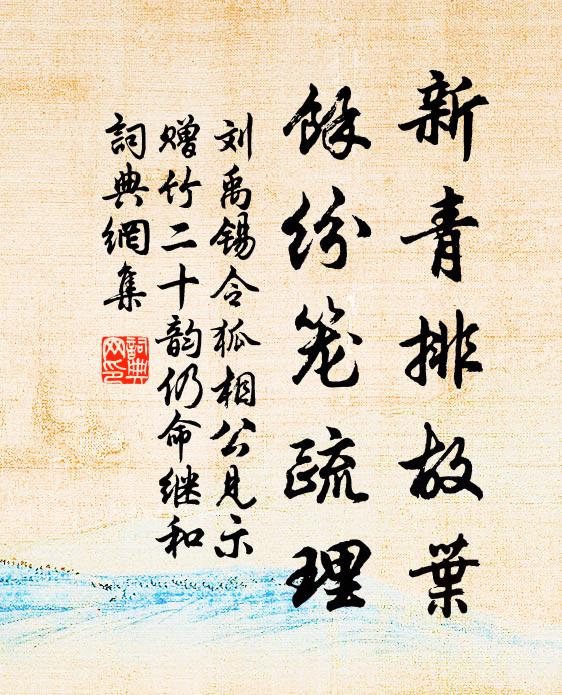 新青排故葉
餘紛笼疏理
刘禹锡令狐相公見示
赠竹二十韵仍命继和
詞典網集
詞典网印